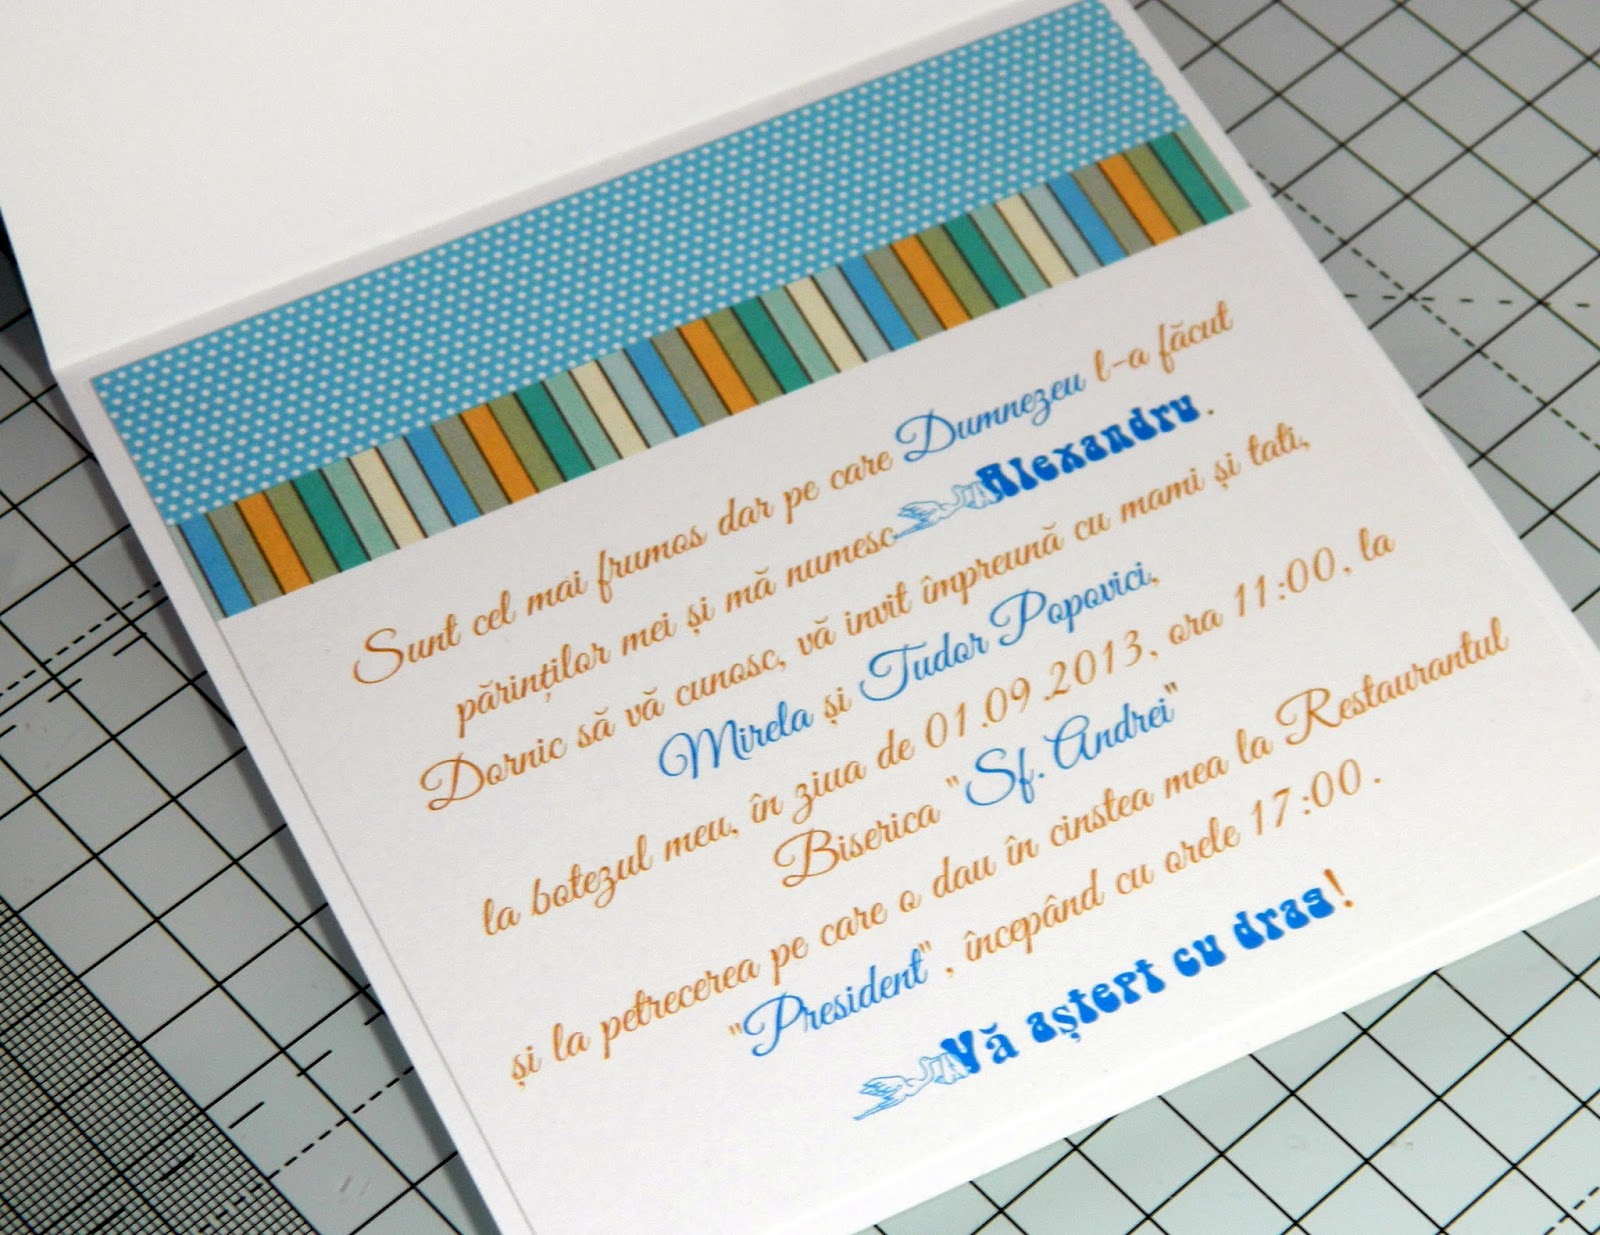 Sunt cel mai frumos dar pe care Dumnezeu l-a făcut
părinților mei și mă numesc Alexandru.
Dornic să vă cunosc, vă invit împreună cu mami și tati,
Mirela și Tudor Popovici,
la botezul meu, în ziua de 01.09.2013, ora 11:00, la
Biserica "Sf. Andrei"
și la petrecerea pe care o dau în cinstea mea la Restaurantul
"President", începând cu orele 17:00.
Vă aștept cu drag!